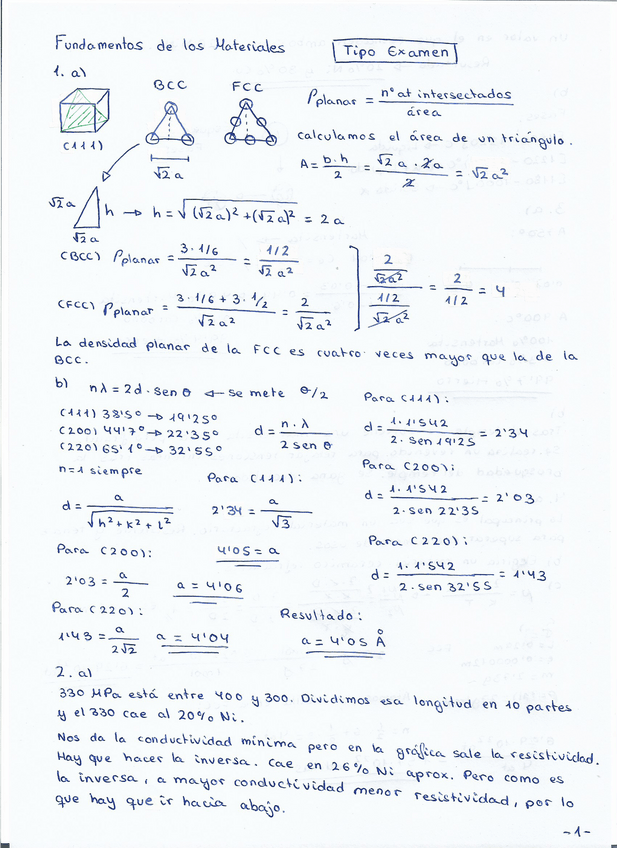 Fundamentos de los Materiales
Tipo Examen
1. a)
(111)
BCC
FCC
√2 a
ρplanar = nº at intersectados / área
calculamos el área de un triángulo.
A = b·h / 2 = √2 a · 2a / 2 = √2 a²
√2 a
h → h = √((√2 a)² + (√2 a)²) = 2a
√2 a
(BCC) ρplanar = 3·1/6 / √2 a² = 1/2 / √2 a²
(FCC) ρplanar = 3·1/6 + 3·1/2 / √2 a² = 2 / √2 a²
2 / √2 a² / 1/2 / √2 a² = 2 / 1/2 = 4
La densidad planar de la FCC es cuatro veces mayor que la de la
BCC.
b) nλ = 2d · sen θ ← se mete θ/2
(111) 38'5º → 19'25º
(200) 44'7º → 22'35º
(220) 65'1º → 32'55º
n=1 siempre
d = n·λ / 2 sen θ
Para (111):
d = 1·1'542 / 2·sen 19'25 = 2'34
Para (200):
d = 1·1'542 / 2·sen 22'35 = 2'03
Para (220):
d = 1·1'542 / 2·sen 32'55 = 1'43
d = a / √(h² + k² + l²)
Para (111):
2'34 = a / √3
4'05 = a
Para (200):
2'03 = a / 2
a = 4'06
Para (220):
1'43 = a / 2√2
a = 4'04
Resultado:
a = 4'05 Å
2. a)
330 MPa está entre 400 y 300. Dividimos esa longitud en 10 partes
y el 330 cae al 20% Ni.
Nos da la conductividad mínima pero en la gráfica sale la resistividad.
Hay que hacer la inversa. Cae en 26% Ni aprox. Pero como es
la inversa, a mayor conductividad menor resistividad, por lo
que hay que ir hacia abajo.
-1-